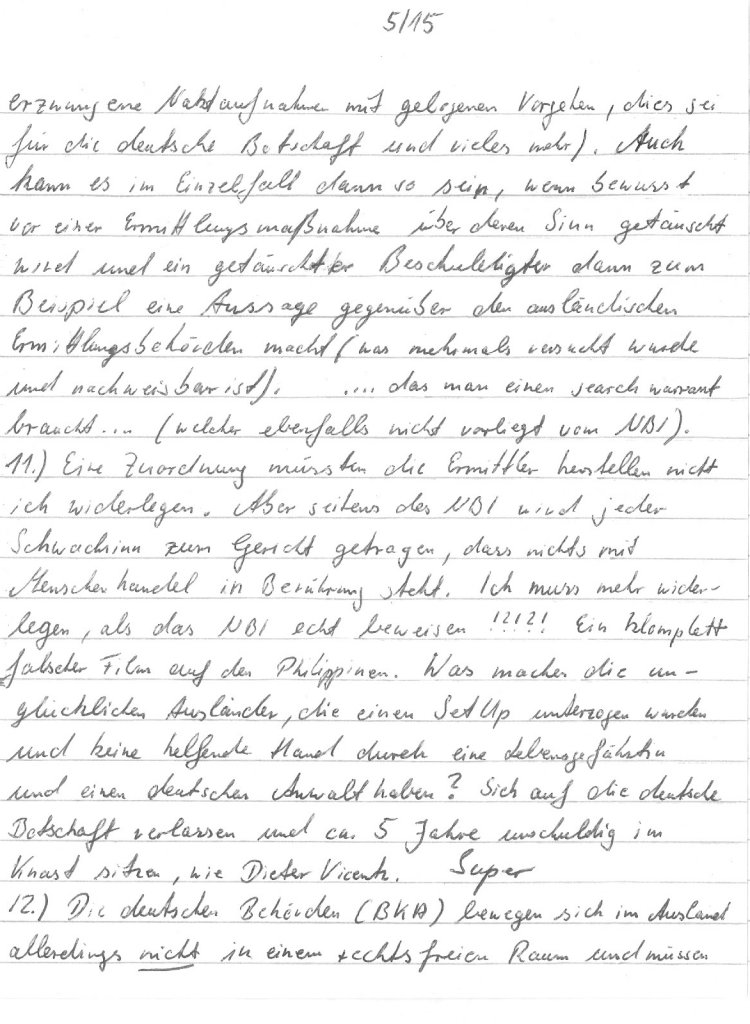 5/15
erzwungene Nacktaufnahmen mit gelogenen Vorgehen, dies sei
für die deutsche Botschaft und vieles mehr). Auch
kann es im Einzelfall dann so sein, wenn bewusst
vor einer Ermittlungsmaßnahme über deren Sinn getäuscht
wird und ein getäuschter Beschuldigter dann zum
Beispiel eine Aussage gegenüber den ausländischen
Ermittlungsbehörden macht (was mehrmals versucht wurde
und nachweisbar ist). .... das man einen search warrant
braucht... (welcher ebenfalls nicht vorliegt vom NBI).
11.) Eine Zuordnung müssten die Ermittler herstellen nicht
ich widerlegen. Aber seitens des NBI wird jeder
Schwachsinn zum Gericht getragen, dass nichts mit
Menschenhandel in Berührung steht. Ich muss mehr wider-
legen, als das NBI echt beweisen !?!?! Ein komplett
falscher Film auf den Philippinen. Was machen die un-
glücklichen Ausländer, die einen SetUp unterzogen wurden
und keine helfende Hand durch eine Lebensgefährtin
und einen deutschen Anwalt haben? Sich auf die deutsche
Botschaft verlassen und ca. 5 Jahre unschuldig im
Knast sitzen, wie Dieter Vicentz. Super
12.) Die deutschen Behörden (BKA) bewegen sich im Ausland
allerdings nicht in einem rechtsfreien Raum und müssen